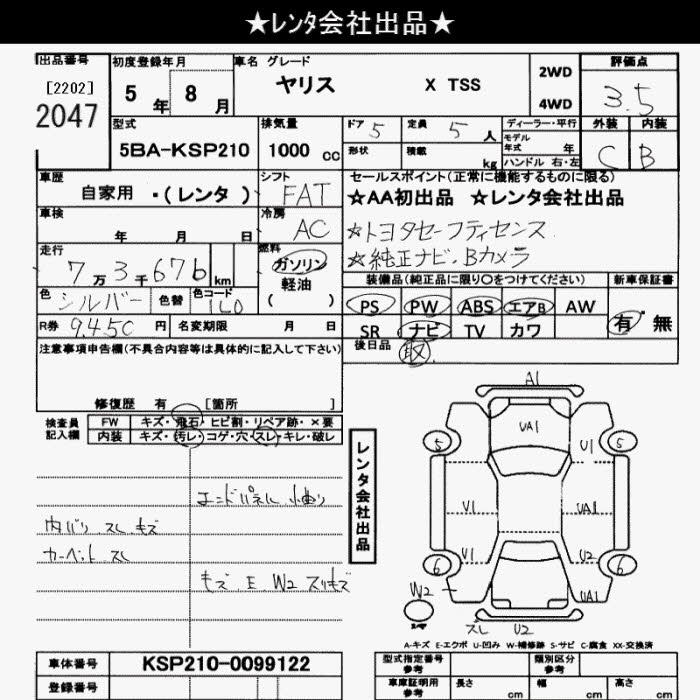 ★レンタ会社出品★
出品番号 初度登録年月 車名 グレード 2WD 評価点
[2202] 5年 8月 ヤリス X TSS 4WD 3.5
2047
型式 排気量 ドア 5 定員 5人 ディーラー・平行 外装 内装
モデル年式 年
5BA-KSP210 1000 cc 形状 積載 kg ハンドル 右・左 C B
車歴 シフト セールスポイント(正常に機能するものに限る)
自家用 ・(レンタ) FAT ★AA初出品 ★レンタ会社出品
車検 年 月 日 冷房 AC ☆トヨタセーフティセンス
走行 燃料 ☆純正ナビ、Bカメラ
7万3千676km ガソリン 装備品(純正品に限り○をつけてください) 新車保証書
軽油
色 シルバー 色替 色コード 1L0 ( ) PS PW ABS エアB AW 有・無
R券 9,450円 名変期限 月 日 SR ナビ TV カワ
注意事項申告欄(不具合内容等は具体的に記入して下さい) 後日品 取
修復歴 有 [箇所 ]
検査員記入欄 FW キズ・飛石・ヒビ割・リペア跡・×要
内装 キズ・汚レ・コゲ・穴・スレ・キレ・破レ
レンタ会社出品
エンドパネル 小曲り
内バリ スレ キズ
カーペット スレ
キズ E W2 スリキズ
A1
UA1
5 U1 5
U1 UA1
U1 U2
6 6
W2 UA1
スレ U2
A-キズ E-エクボ U-凹み W-補修跡 S-サビ C-腐食 XX-交換済
車体番号 KSP210-0099122 型式指定番号 参考 類別区分 参考
登録番号 車庫証明用 参考 長さ cm 幅 cm 高さ cm